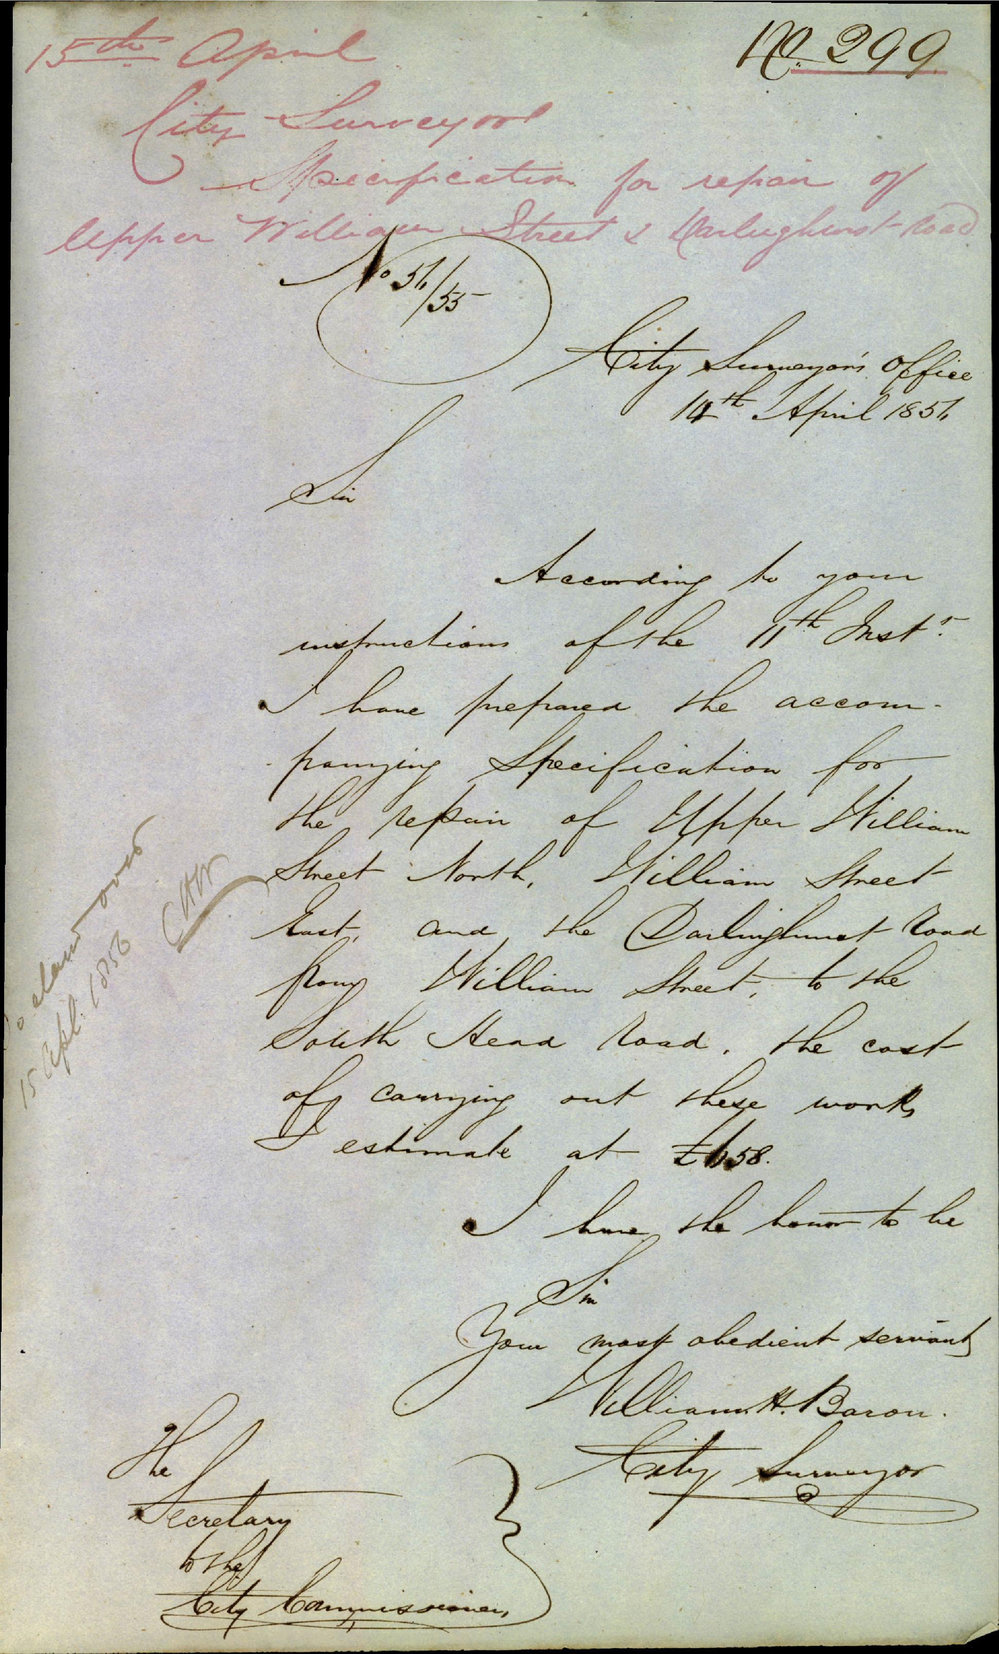 15th April
No. 299
City Surveyor
Specification for repair of
Upper William Street & Darlinghurst road
No 56/55
City Surveyor's Office
14th April 1856
Sir
According to your
instructions of the 11th Inst.
I have prepared the accom-
panying Specification for
the repair of Upper William
Street North, William Street
East, and the Darlinghurst Road
from William Street, to the
South Head Road. the cost
of carrying out these works
I estimate at £658.
I have the honor to be
Sir
Your most obedient servant
William H. Baron.
City Surveyor
The
Secretary
to the
City Commissioners
15 Apl. 1856